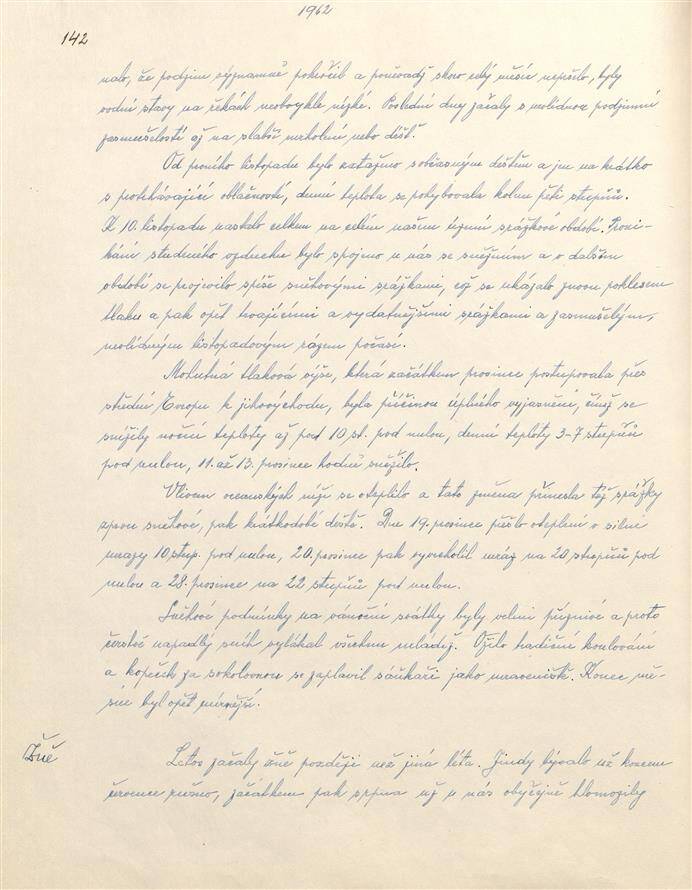 1962
142
nalo, že podzim významně pokročil a poněvadž skoro celý měsíc nepršelo, byly
vodní stavy na řekách neobvykle nízké. Poslední dny začaly s nevlídnou podzimní
zasmušilostí až na slabší mrholení nebo déšť.
Od prvního listopadu bylo zataženo s občasným deštěm a jen na krátko
s protrhávající oblačností, denní teplota se pohybovala kolem pěti stupňů.
K 10. listopadu nastalo celkem na celém našem území srážkové období. Proni-
kání studeného vzduchu bylo spojeno u nás se sněžením a v dalším
období se projevilo spíše sněhovými srážkami, což se ukázalo znovu poklesem
tlaku a pak opět trvajícími a vydatnějšími srážkami a zasmušilým,
nevlídným listopadovým rázem počasí.
Mohutná tlaková výše, která začátkem prosince postupovala přes
střední Evropu k jihovýchodu, byla příčinou úplného vyjasnění, čímž se
snížily noční teploty až pod 10 st. pod nulou, denní teploty 3-7 stupňů
pod nulou, 11. až 13. prosince hodně sněžilo.
Vlivem oceánských níží se oteplilo a tato změna přinesla též srážky
zprvu sněhové, pak krátkodobé deště. Dne 19. prosince přešlo oteplení v silné
mrazy 10 stup. pod nulou, 20. prosince pak vyvrcholil mráz na 20 stupňů pod
nulou a 28. prosince na 22 stupňů pod nulou.
Sněhové podmínky na vánoční svátky byly velmi příznivé a proto
čerstvě napadlý sníh vylákal všechnu mládež. Ožilo tradiční koulování
a kopeček za sokolovnou se zaplavil sáňkaři jako mraveniště. Konec mě-
síce byl opět mírnější.
Žně
Letos začaly žně později než jiná léta. Jindy bývalo už koncem
července rušno, začátkem pak srpna už u nás obyčejně hlomozily